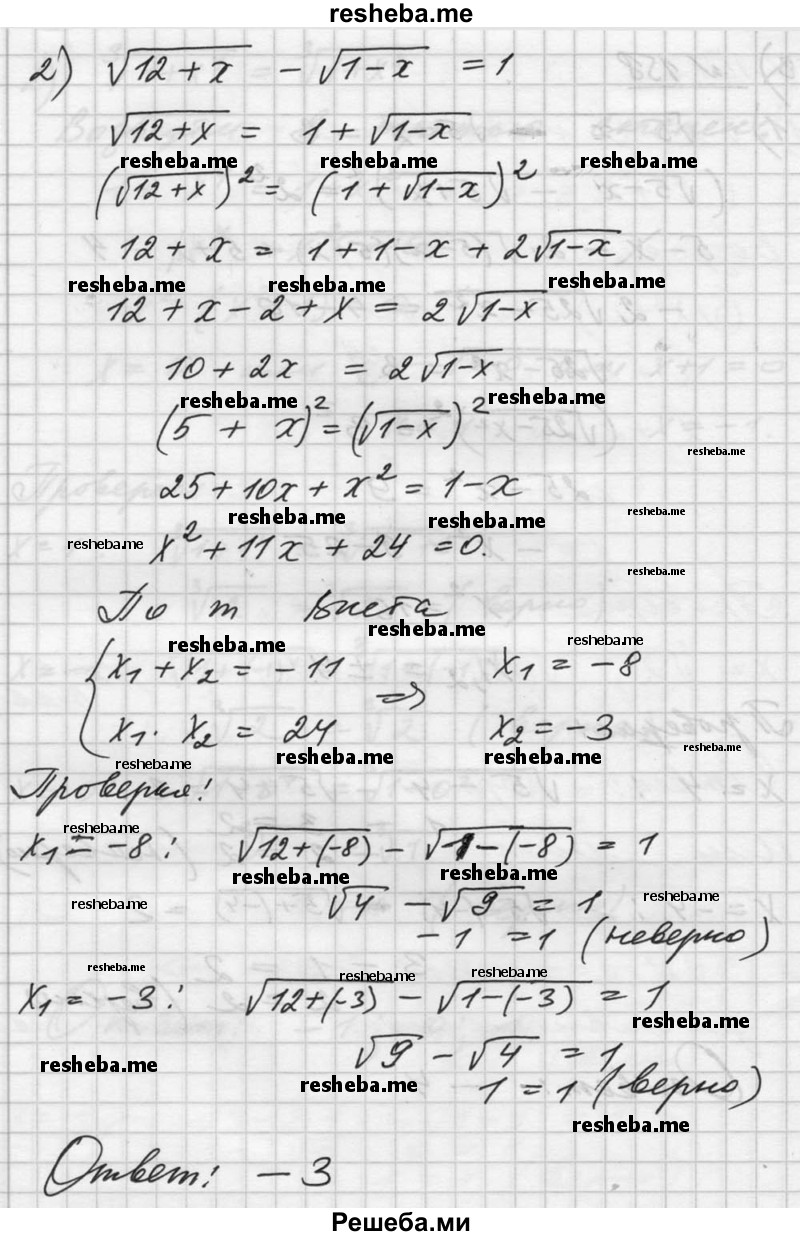 resheba.me
2) √(12+x) - √(1-x) = 1
√(12+x) = 1 + √(1-x)
resheba.me resheba.me resheba.me
(√(12+x))² = (1 + √(1-x))²
12 + x = 1 + 1 - x + 2√(1-x)
resheba.me resheba.me resheba.me
12 + x - 2 + x = 2√(1-x)
10 + 2x = 2√(1-x)
resheba.me resheba.me
(5 + x)² = (√(1-x))²
resheba.me
25 + 10x + x² = 1 - x
resheba.me resheba.me resheba.me
resheba.me x² + 11x + 24 = 0.
resheba.me
По т Виета
resheba.me resheba.me resheba.me
{ x₁ + x₂ = -11 ⇒ x₁ = -8
x₁ · x₂ = 24 x₂ = -3
resheba.me resheba.me resheba.me resheba.me
Проверка!
resheba.me
x₁ = -8: √(12+(-8)) - √(1-(-8)) = 1
resheba.me resheba.me
resheba.me √4 - √9 = 1 resheba.me
-1 = 1 (неверно)
resheba.me resheba.me resheba.me
x₁ = -3: √(12+(-3)) - √(1-(-3)) = 1
resheba.me
resheba.me √9 - √4 = 1
resheba.me 1 = 1 (верно)
resheba.me
Ответ: -3
Решеба.ми